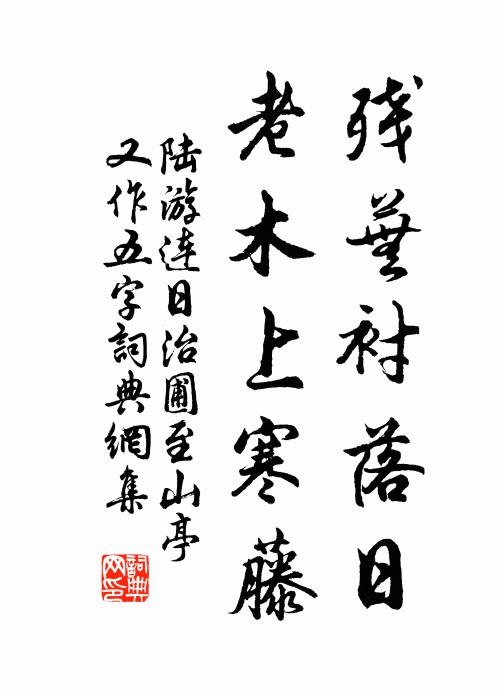 残蕪衬落日
老木上寒藤
陆游连日治圃至山亭
又作五字詞典網集
詞典
网印